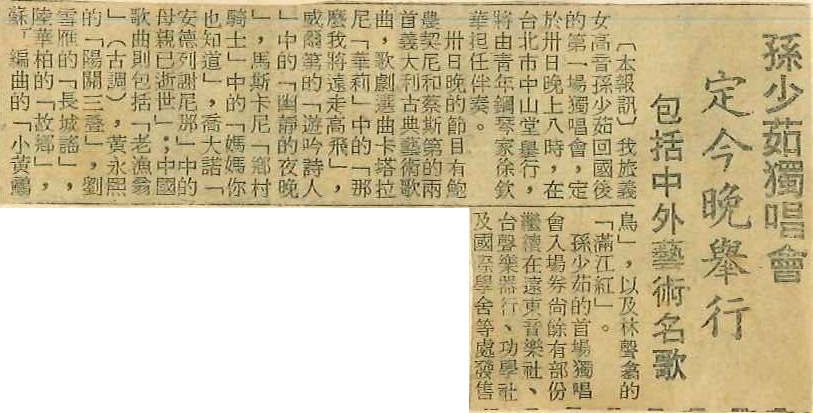 孫少茹獨唱會
定今晚舉行
包括中外藝術名歌
〔本報訊〕我旅義
女高音孫少茹回國後
的第一場獨唱會，定
於卅日晚上八時，在
台北市中山堂舉行，
將由青年鋼琴家徐欽
華担任伴奏。
卅日晚的節目有鮑
農契尼和蔡斯第的兩
首義大利古典藝術歌
曲，歌劇選曲卡塔拉
尼「華莉」中的「那
麼我將遠走高飛」，
威爾第的「遊吟詩人
」中的「幽靜的夜晚
」，馬斯卡尼「鄉村
騎士」中的「媽媽你
也知道」，喬大諾「
安德列謝尼那」中的
母親已逝世」；中國
歌曲則包括「老漁翁
」（古調），黃永熙
的「陽關三疊」，劉
雪雁的「長城謠」，
陸華柏的「故鄉」，
蘇「編曲的「小黃鸝
鳥」，以及林聲翕的
「滿江紅」。
孫少茹的首場獨唱
會入場券尚餘有部份
繼續在遠東音樂社、
台聲樂器行、功學社
及國際學舍等處發售